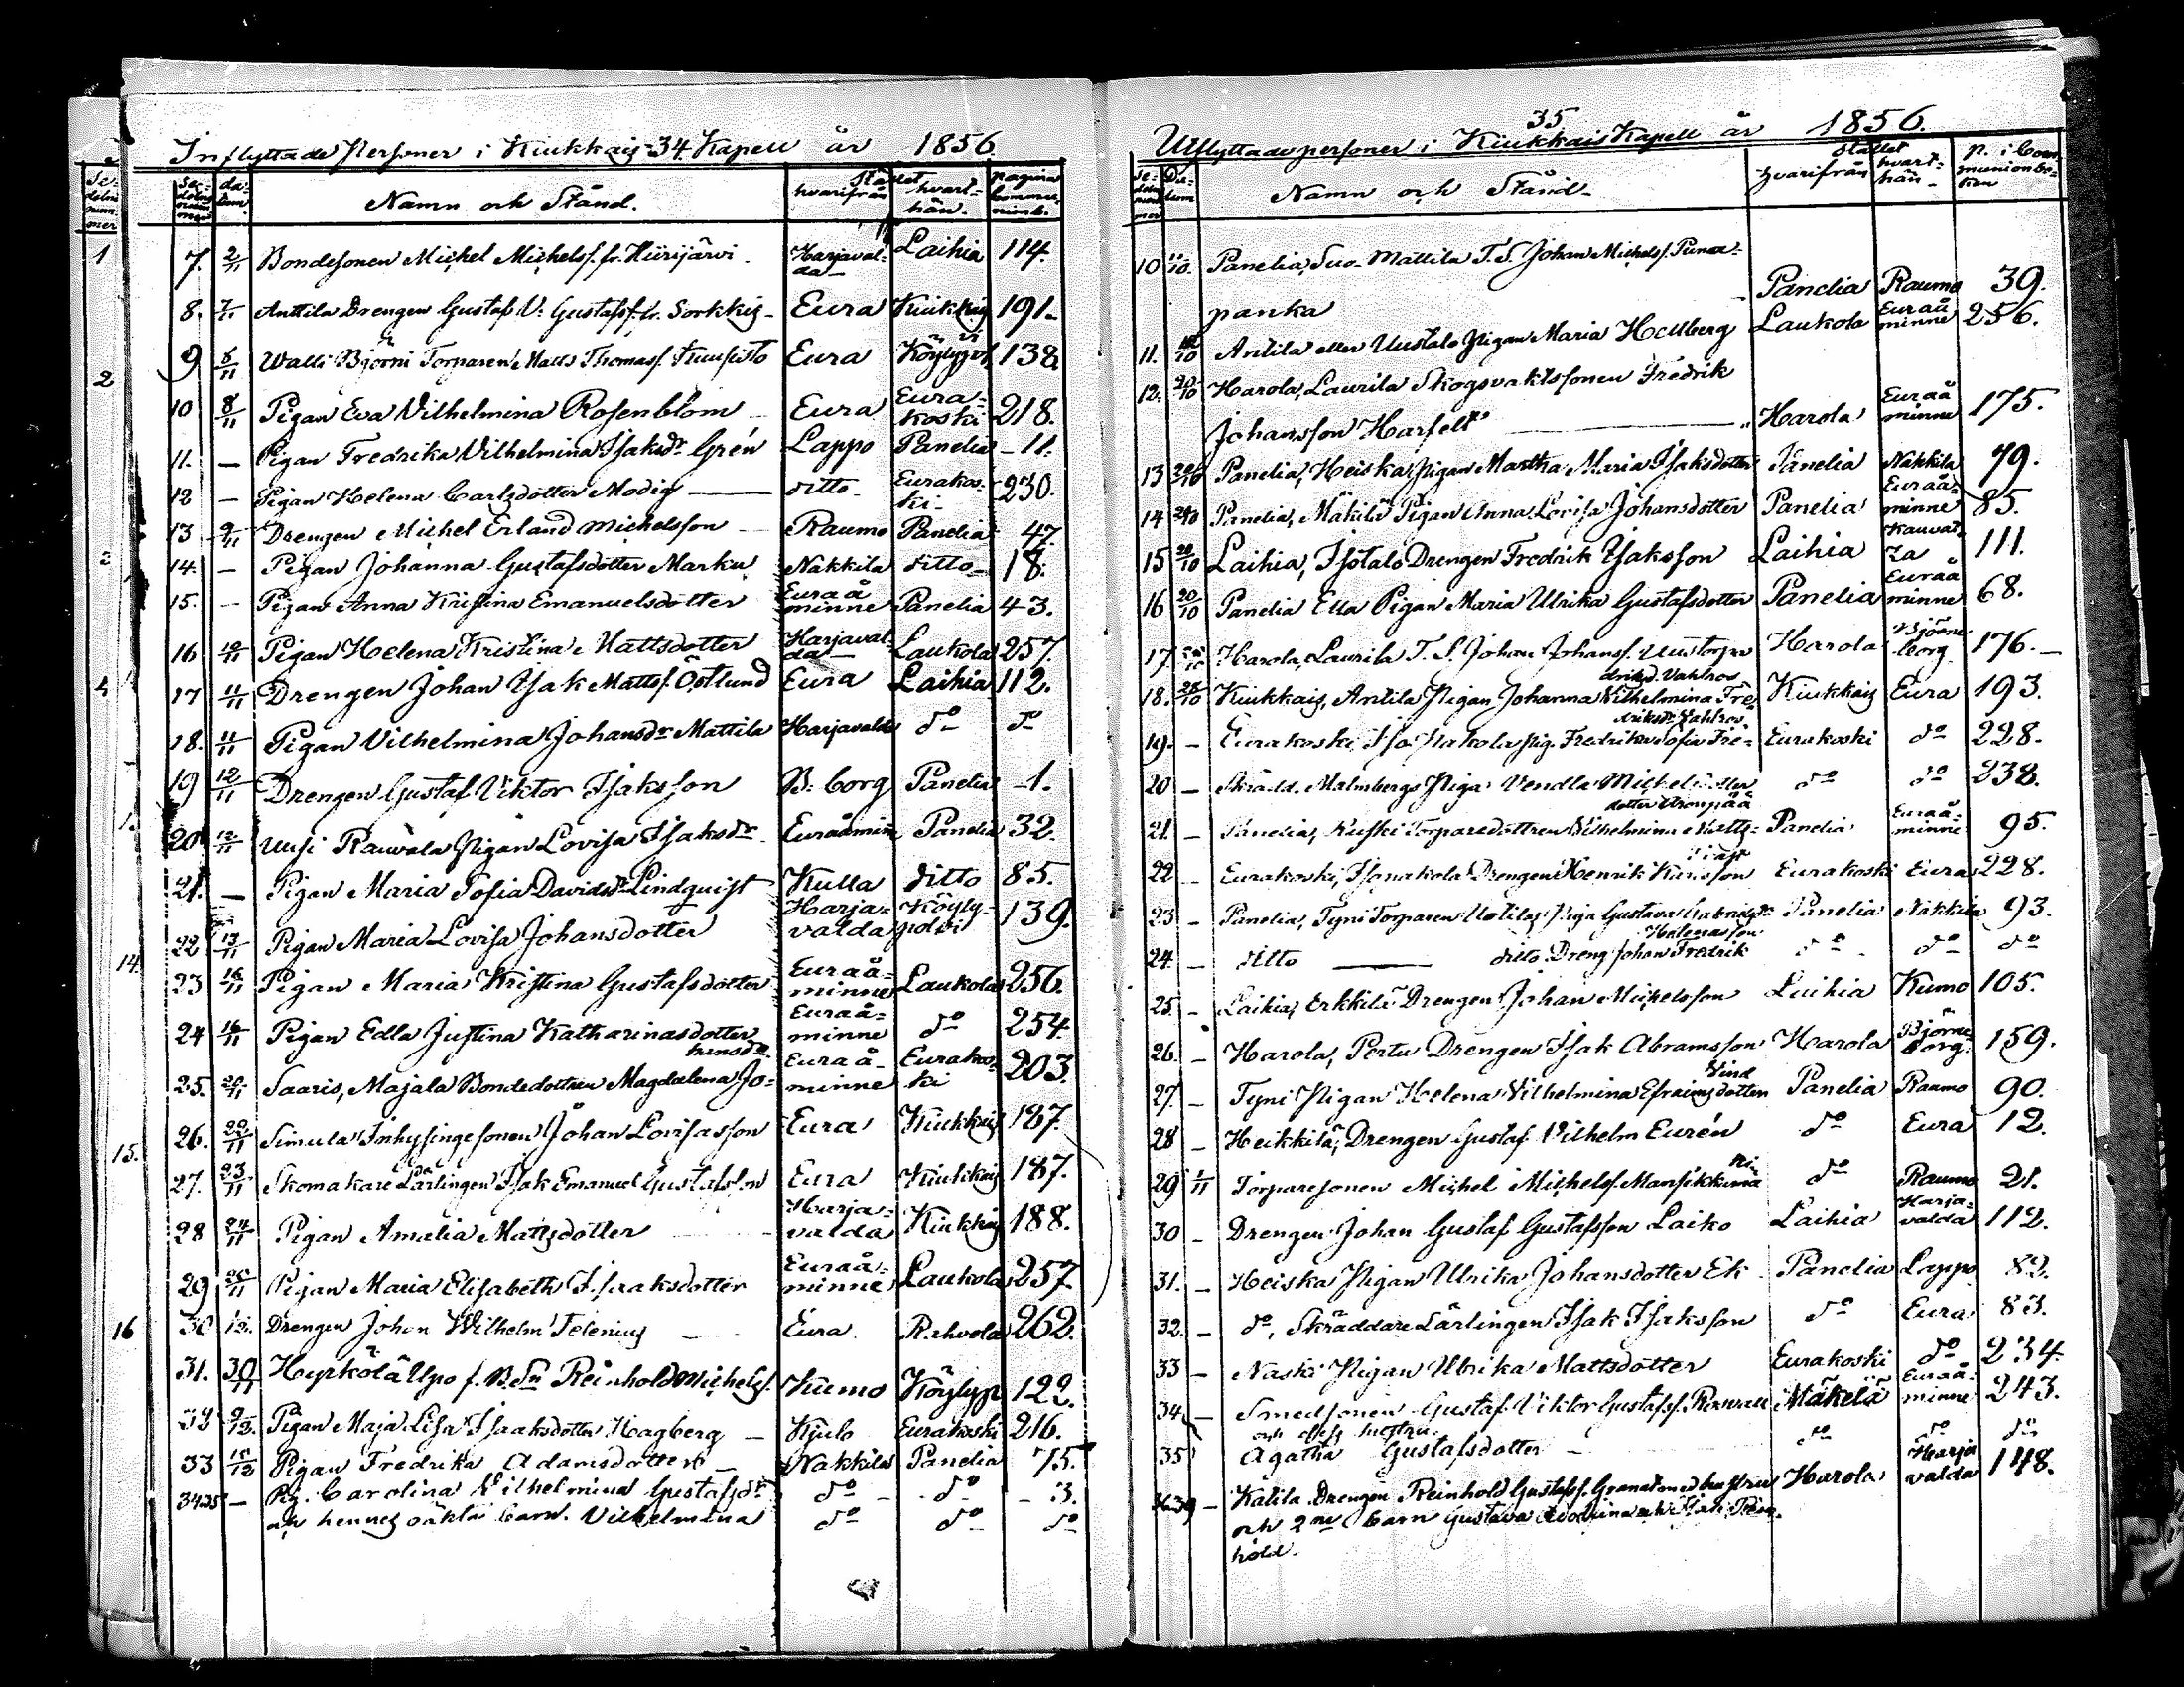 Inflyttade Personer i Kiukkais 34 Kapell år 1856
Sedelns nummer datum Namn och Stånd. Stället hvarifrån hvarthän. pagina
7. 2/11 Bondesonen Michel Michelss. fr. Hiirijärvi Harjavalda Laihia 114.
8. 7/11 Anttila Drengen Gustaf V. Gustafss. fr. Sorkkis Eura Kiukkais 191.
9 8/11 Walli Björni Torparen Matts Thomass. Kuusisto Eura 138.
10 8/11 Pigan Eva Vilhelmina Rosenblom Eura Eurakoski 218.
11. — Pigan Fredrika Vilhelmina Isaksdr Grén Lappo Panelia 11.
12 — Pigan Helena Carlsdotter Modig ditto Eurakoski 230.
13 9/11 Drengen Michel Erland Michelsson Raumo Panelia 47.
14. — Pigan Johanna Gustafsdotter Marku Nakkila ditto 18.
15. — Pigan Anna Kristina Emanuelsdotter Euraåminne Panelia 43.
16 10/11 Pigan Helena Kristina Mattsdotter Harjavalda Laukola 257.
17 11/11 Drengen Johan Isak Mattss. Östlund Eura Laihia 112.
18. 11/11 Pigan Vilhelmina Johansdr Mattila Harjavalda do do
19 12/11 Drengen Gustaf Viktor Isaksson B:borg Panelia 1.
20 12/11 Uusi Rauvala Pigan Lovisa Isaksdr Euraåminne Panelia 32.
21. — Pigan Maria Sofia Davidsdr Lindquist Kulla ditto 85.
22 13/11 Pigan Maria Lovisa Johansdotter Harjavalda Köylypolvi 139.
23 16/11 Pigan Maria Kristina Gustafsdotter Euraåminne Laukola 256.
24 16/11 Pigan Edla Justina Katharinasdotter Euraåminne do 254.
25. 20/11 Saaris, Majala Bondedottren Magdalena Johansdr Euraåminne Eurakoski 203
26. 22/11 Simula Inhysingesonen Johan Lovisasson Eura Kiukkais 187.
27. 23/11 Skomakare Lärlingen Isak Emanuel Gustafsson Eura Kiukkais 187.
28 24/11 Pigan Amalia Mattsdotter Harjavalda Kiukkais 188.
29 25/11 Pigan Maria Elisabeth Isaaksdotter Euraåminne Laukola 257
30 Drengen Johan Wilhelm Telenius Eura Rahvola 262.
31. 30/11 Hyrkölä Upo f. Bdsn Reinhold Michelss. Kumo Köylyp 122.
32 9/12 Pigan Maja Lisa Isaaksdotter Hagberg Kjulo Eurakoski 216.
33 15/12 Pigan Fredrika Adamsdotter Nakkila Panelia 75.
34.35 — Pig. Carolina Vilhelmina Gustafsdr do do 3.
och hennes oäkta barn. Vilhelmina do do do
35
Utflyttade personer i Kiukkais Kapell år 1856.
Sedelns nummer Datum Namn och Stånd Stället hvarifrån hvarthän p. i Communionboken
10 11/10 Panelia, Suo-Mattila T.S. Johan Michelss. Punapanka Panelia Raumo 39.
11. Antila eller Uustalo Pigan Maria Hellberg Laukola Euraåminne 256.
12. 20/10 Harola, Laurila Skogsvaktssonen Fredrik
Johansson Harfelt Harola Euraåminne 175.
13 20/10 Panelia, Heiska Pigan Martha Maria Isaksdotter Panelia Nakkila 79.
14 Panelia, Mäkilä Pigan Anna Lovisa Johansdotter Panelia Euraåminne 85.
15 20/10 Laihia, Isotalo Drengen Fredrik Isaksson Laihia 111.
16 20/10 Panelia Ella Pigan Maria Ulrika Gustafsdotter Panelia Euraåminne 68.
17. Harola, Laurila T.S. Johan Johanss. Uustorpa Harola Björneborg 176.
18. 28/10 Kiukkais, Antila Pigan Johanna Vilhelmina Fredriksd. Vahlros Kiukkais Eura 193.
19. — Eurakoski, Iso Nakola Pig. Fredrika Sofia Fredriksdr Vahlros Eurakoski do 228.
20 — Skrädd. Malmbergs Piga Vendla Michelsdotter do do 238.
21. — Panelia, Kuski Torparedottren Vilhelmina Mattsdotter Panelia Euraåminne 95.
22 — Eurakoski, Isonakola Drengen Henrik Eurakoski Eura 228.
23 — Panelia, Tyni Torparen Piga Gustava Gabrielsdr Panelia Nakkila 93.
24. — ditto ditto Dreng Johan Fredrik Helenasson do do do
25. — Laihia, Erkkilä Drengen Johan Michelsson Laihia Kumo 105.
26. — Harola, Pertu Drengen Isak Abramsson Harola Björneborg 159.
27. — Tyni Pigan Helena Vilhelmina Efraimsdotter Vind Panelia Raumo 90.
28 — Heikkilä, Drengen Gustaf Vilhelm Eurén do Eura 12.
29 1/11 Torparesonen Michel Michelss. do Raumo 21.
30 — Drengen Johan Gustaf Gustafsson Laiko Laihia Harjavalda 112.
31. — Heiska Pigan Ulrika Johansdotter Ek Panelia Lappo 82.
32. — do, Skräddare Lärlingen Isak Isaksson do Eura 83.
33 — Naski Pigan Ulrika Mattsdotter Eurakoski do 234.
34 — Smedsonen Gustaf Viktor Gustafss. Mäkelä Euraåminne 243.
och dess hustru
35 Agatha Gustafsdotter do do do
36.39 — Katila Drengen Reinhold Gustafss. Granat med hustru Harola Harjavalda 148.
och 2ne barn Gustava och Isak Reinhold.